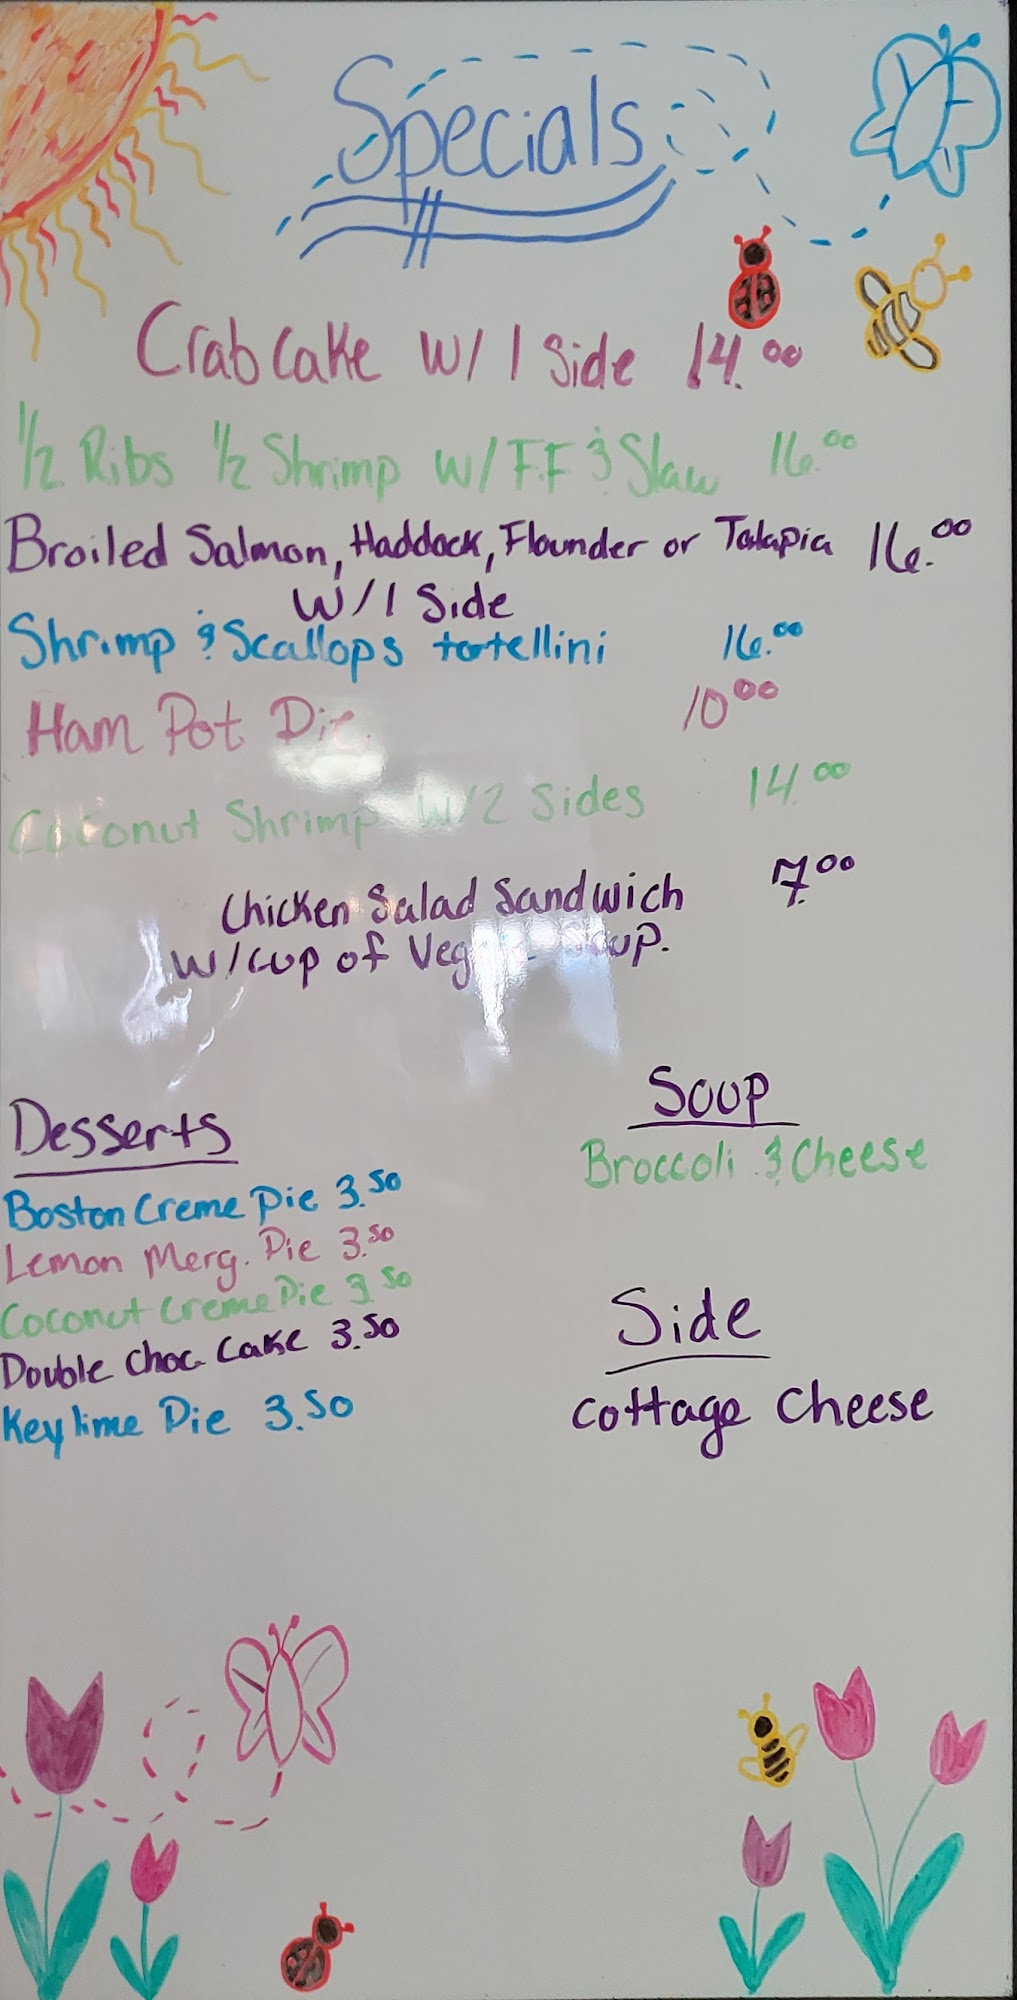 Specials
Crab Cake w/ 1 Side 14.00
1/2 Ribs 1/2 Shrimp w/ F.F & Slaw 16.00
Broiled Salmon, Haddock, Flounder or Talapia 16.00
w/ 1 Side
Shrimp & Scallops tortellini 16.00
Ham Pot Pie 10.00
Coconut Shrimp w/ 2 Sides 14.00
Chicken Salad Sandwich 7.00
w/ cup of Soup.
Soup
Broccoli & Cheese
Desserts
Boston Creme Pie 3.50
Lemon Merg. Pie 3.50
Coconut Creme Pie 3.50
Double Choc. Cake 3.50
Key lime Pie 3.50
Side
Cottage Cheese